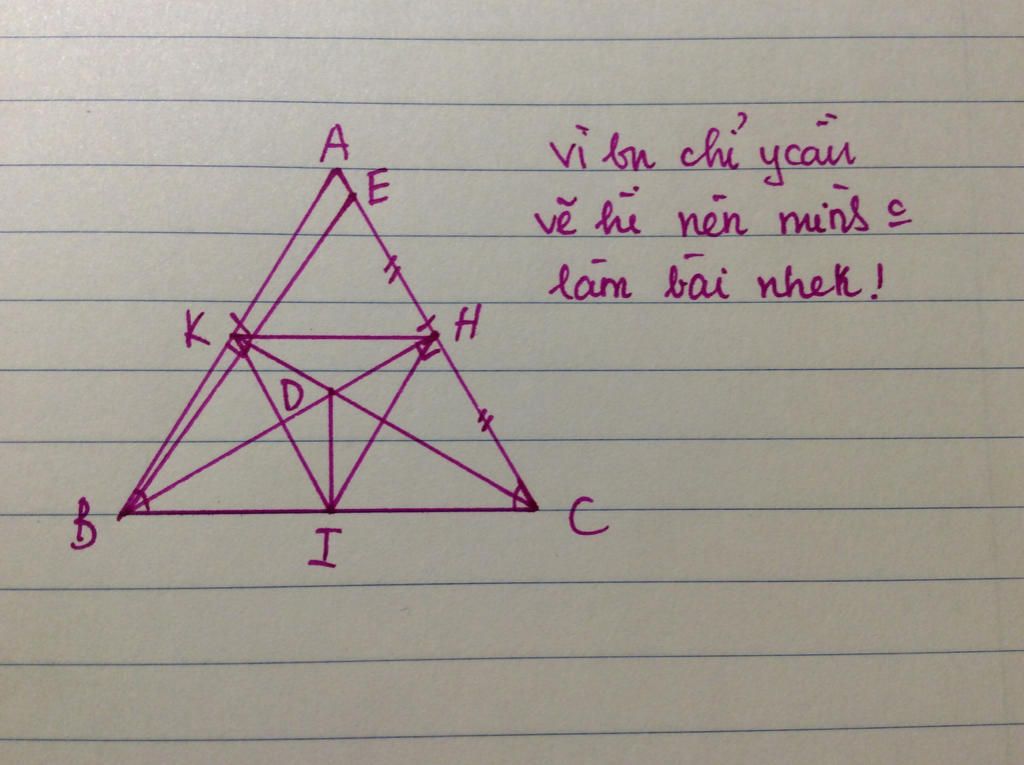 A
E
K
H
D
B
I
C
vì bn chỉ ycầu
vẽ hì nên mình
làm bài nhek!